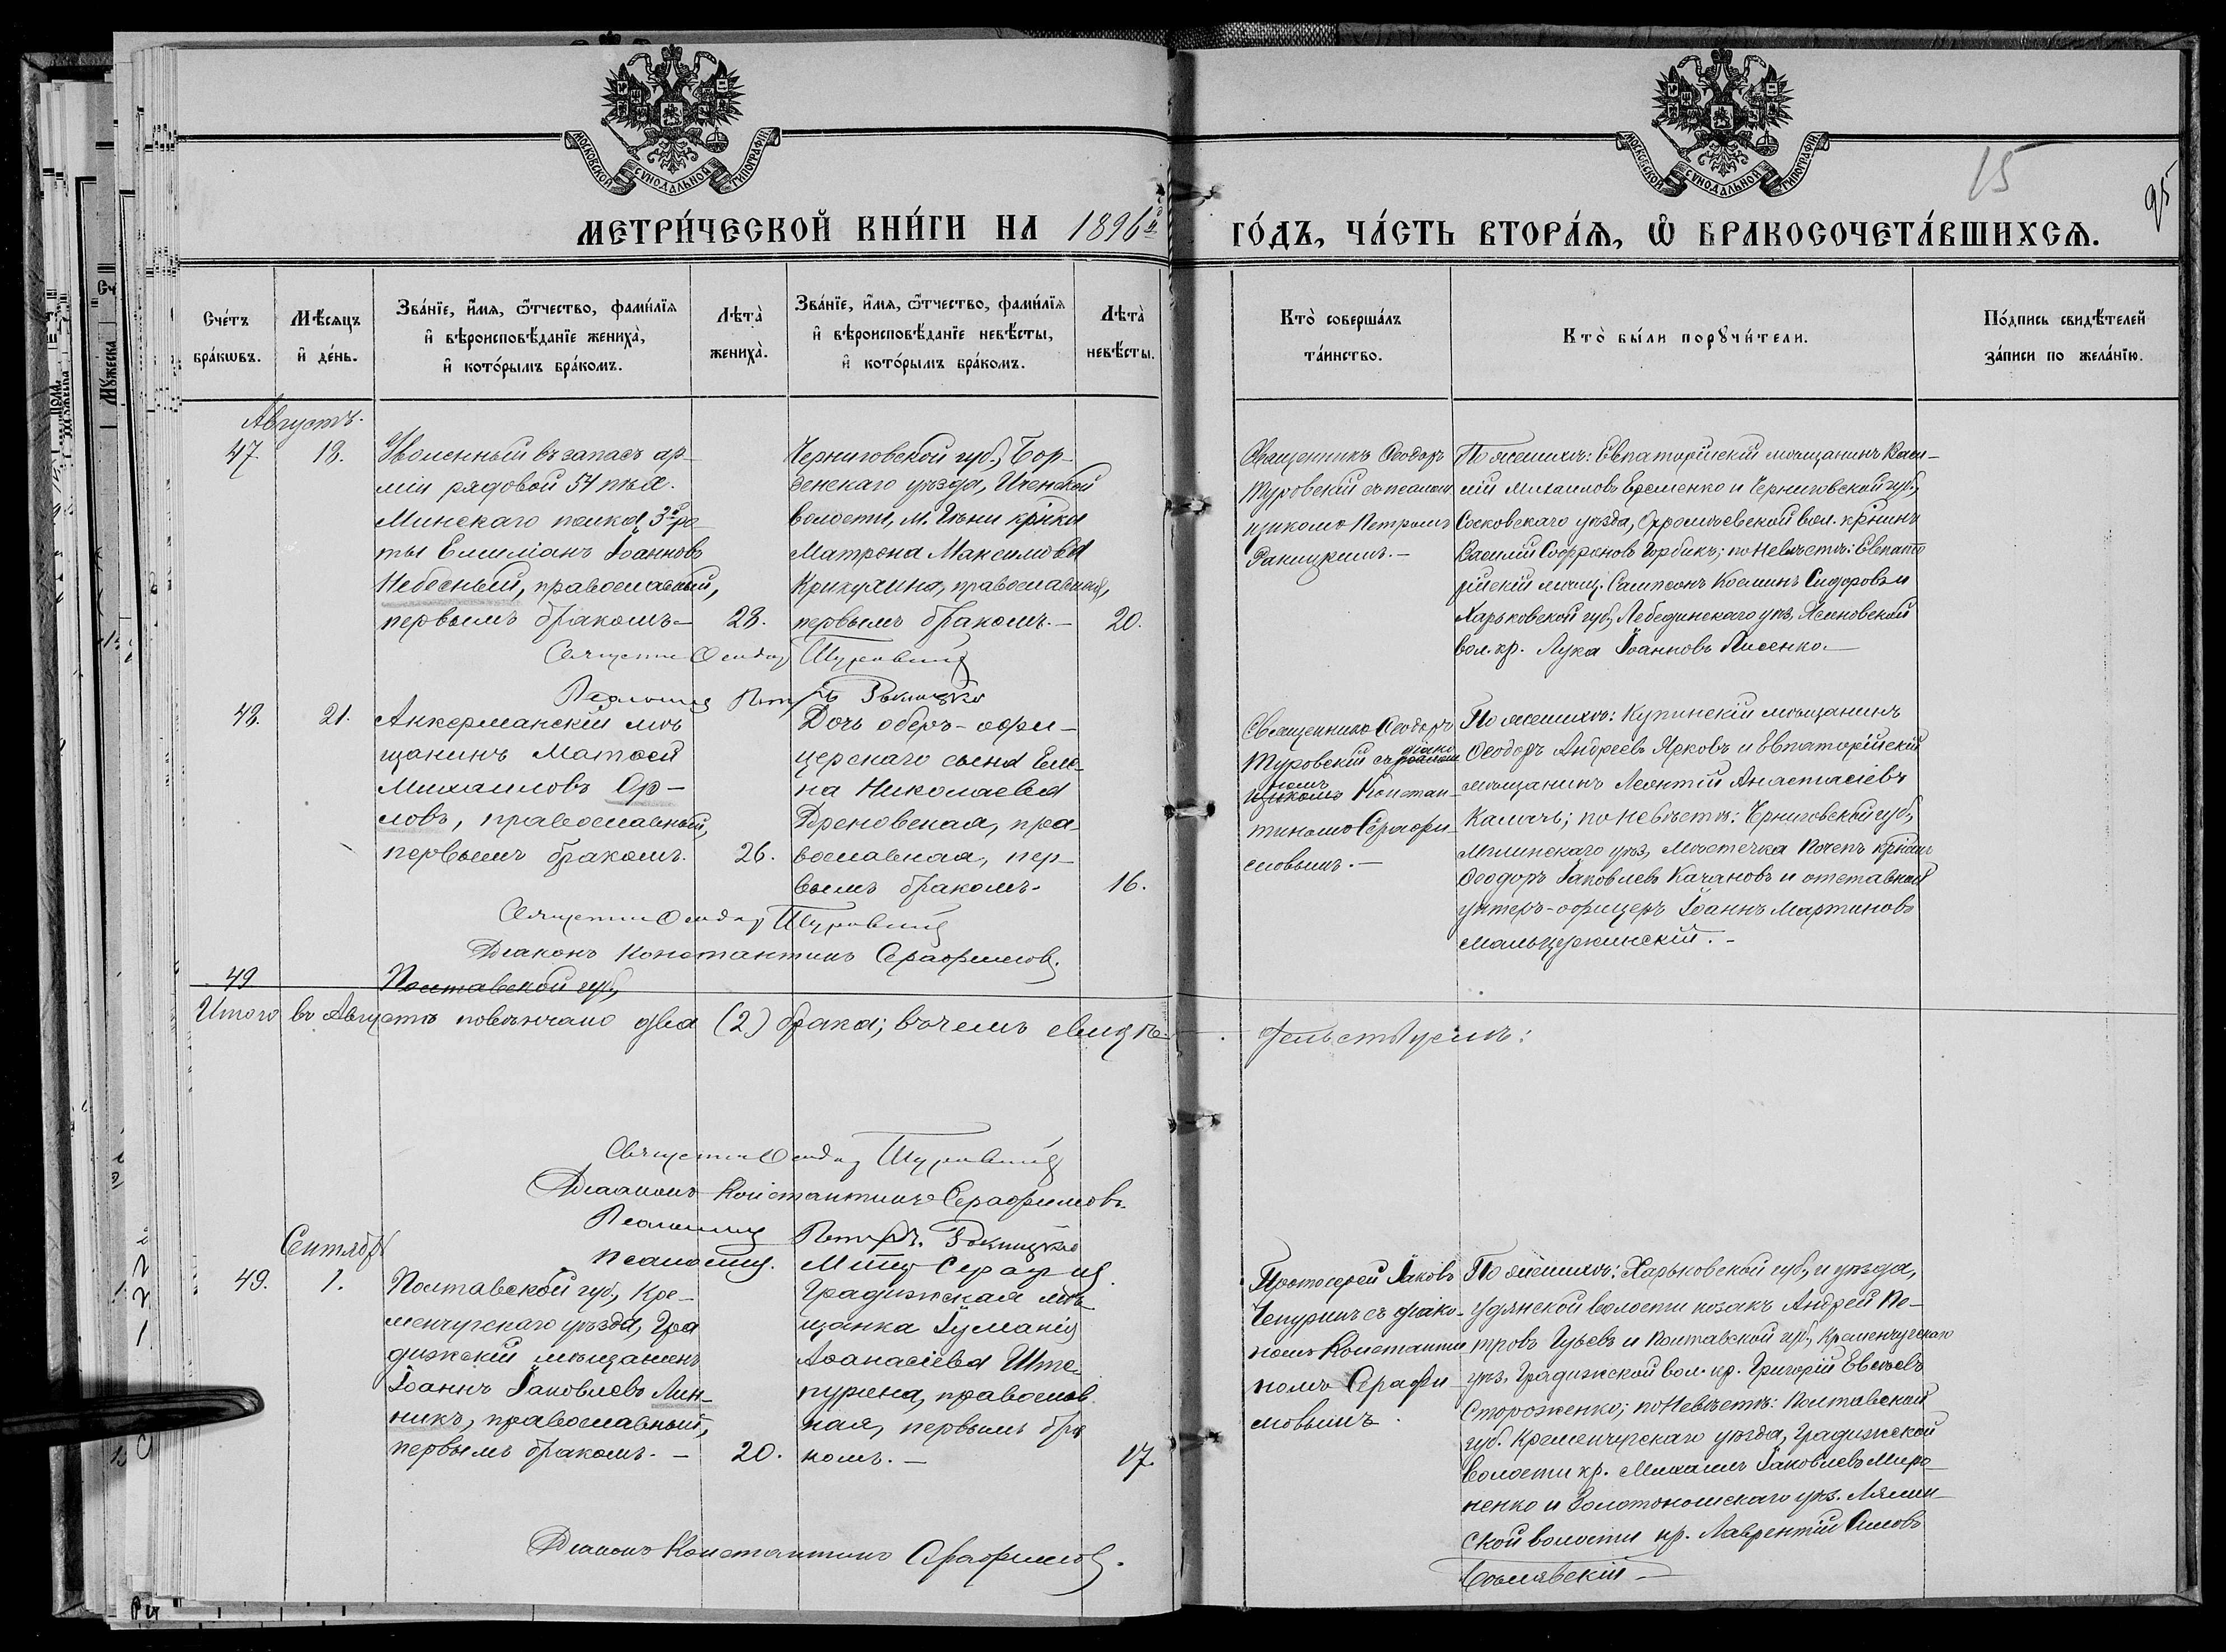 МОСКОВСКОЙ СУНОДАЛЬНОЙ ТИПОГРАФІИ
МОСКОВСКОЙ СУНОДАЛЬНОЙ ТИПОГРАФІИ
15
95
МЕТРИ́ЧЕСКОЙ КНИ́ГИ НА 1896й
ГО́ДЪ, ЧА́СТЬ ВТОРА́Ѧ, Ѽ БРАКОСОЧЕТА́ВШИХСѦ.
Сче́тъ бра́кѡвъ.
Мѣ́сяцъ и҆ де́нь.
Зва́нїе, и҆́мя, ѻ҆́тчество, фами́лїя
и҆ вѣроисповѣ́данїе жениха̀,
и҆ кото́рымъ бра́комъ.
Лѣта̀ жениха̀.
Зва́нїе, и҆́мя, ѻ҆́тчество, фами́лїя
и҆ вѣроисповѣ́данїе невѣ́сты,
и҆ кото́рымъ бра́комъ.
Лѣта̀ невѣ́сты.
Кто̀ соверша́лъ та́инство.
Кто̀ бы́ли порꙋчи́тели.
По́дпись свидѣ́телей за́писи по жела́нїю.
Августъ.
47
18.
Уволенный въ запасъ ар-
міи рядовой 54 пѣх.
Минскаго полка 3й ро-
ты Емиліанъ Іоанновъ
Небесный, православный,
первымъ бракомъ.-
28.
Черниговской губ., Бор-
зенскаго уѣзда, Иченской
волости, м. Ични кр-нка
Матрона Максимова
Крикунина, православная,
первымъ бракомъ.-
20.
Священникъ Ѳеодоръ
Туровскій съ псалом
щикомъ Петромъ
Ракицкимъ.-
По женихѣ: Евпаторійскій мѣщанинъ Васи-
лій Михаиловъ Еременко и Черниговской губ.,
Сосковскаго уѣзда, вол. кр-нинъ
Василій Софроновъ Горбикъ; по невѣстѣ: Евпато
рійскій мѣщ. Сампсонъ Косминъ Сидоровъ и
Харьковской губ., Лебединскаго уѣз., Ясеновской
вол. кр. Лука Іоанновъ Лисенко.-
Священникъ Ѳеодоръ Туровскій
Псаломщ. Петръ Ракицкій
48.
21.
Аккерманскій мѣ
щанинъ Матѳей
Михаиловъ Ор-
ловъ, православный,
первымъ бракомъ.
26.
Дочь оберъ-офи-
церскаго сына Еле-
на Николаева
Дреновская, пра-
вославная, пер-
вымъ бракомъ.
16.
Священникъ Ѳеодоръ
Туровскій съ діако
номъ Констан-
тиномъ Серафи-
мовымъ.-
По женихѣ: Купинскій мѣщанинъ
Ѳеодоръ Андреевъ Ярковъ и Евпаторійскій
мѣщанинъ Леонтій Анастасіевъ
Камачъ; по невѣстѣ: Черниговской губ.,
Мглинскаго уѣз., мѣстечка Почепъ кр-нинъ
Ѳеодоръ Іаковлевъ Качановъ и отставной
унтеръ-офицеръ Іоаннъ Мартиновъ
Священникъ Ѳеодоръ Туровскій
Діаконъ Константинъ Серафимовъ.
49
Полтавской губ.,
Итого въ Августѣ повѣнчано два (2) брака; въ чемъ свидѣ-
тельствуемъ:
Священникъ Ѳеодоръ Туровскій
Діаконъ Константинъ Серафимовъ.
Псаломщ. Петръ Ракицкій
Псаломщ.
Сентябрь
49.
1.
Полтавской губ., Кре-
менчугскаго уѣзда, Гра
дижскій мѣщанинъ
Іоаннъ Іаковлевъ Лин-
никъ, православный,
первымъ бракомъ.-
20.
Градижская мѣ-
щанка Іуліанія
Аѳанасіева Ште-
пурина, православ-
ная, первымъ бра
комъ.-
17.
Протоіерей Іаковъ
Чепуринъ съ діако-
номъ Константи
номъ Серафи-
мовымъ.
По женихѣ: Харьковской губ., и уѣзда,
Удянской волости козакъ Андрей Пе-
тровъ Гусевъ и Полтавской губ., Кременчугскаго
уѣз. Градижской вол. кр. Григорій Евсѣевъ
Стороженко; по невѣстѣ: Полтавской
губ. Кременчугскаго уѣзда, Градижской
волости кр. Михаилъ Іаковлевъ Миро-
ненко и Золотоношскаго уѣз. Лялин-
ской волости кр. Лаврентій
Діаконъ Константинъ Серафимовъ.